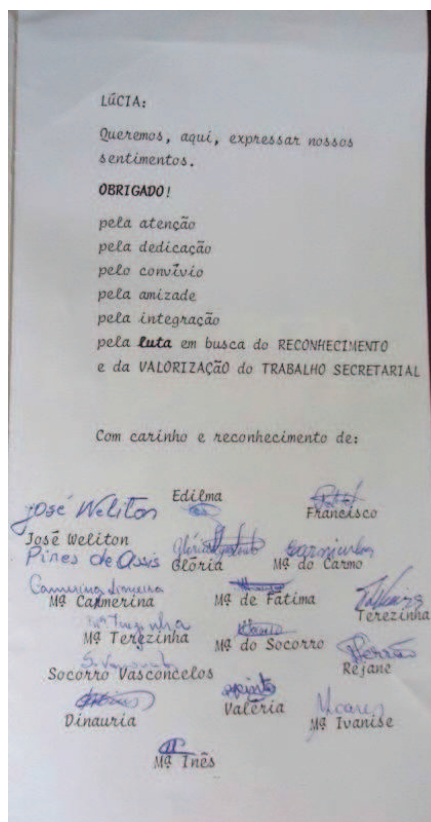 LÚCIA:
Queremos, aqui, expressar nossos
sentimentos.
OBRIGADO!
pela atenção
pela dedicação
pelo convívio
pela amizade
pela integração
pela luta em busca do RECONHECIMENTO
e da VALORIZAÇÃO do TRABALHO SECRETARIAL
Com carinho e reconhecimento de:
Edilma
José Weliton
Francisco
José Weliton
Pires de Assis
Glória
Mª do Carmo
Mª Carmerina
Mª de Fátima
Terezinha
Mª Terezinha
Mª do Socorro
Rejane
Socorro Vasconcelos
Dinauria
Valéria
Mª Ivanise
Mª Inês